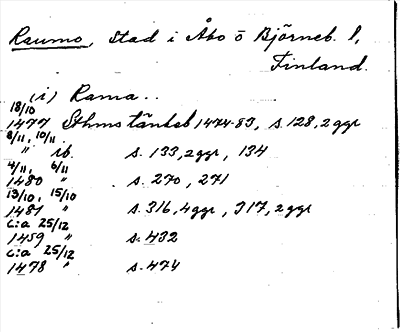 Raumo, stad i Åbo o Björneb. l,
Finland.
(i) Rama..
18/10
1477 Sthms tänkeb 1474-83, s. 128, 2 ggr
8/11, 10/11
" ib. s. 133, 2 ggr, 134
4/11, 6/11
1480 " s. 270, 271
13/10, 15/10
1481 " s. 316, 4 ggr, 317, 2 ggr
c:a 25/12
1459 " s. 432
c:a 25/12
1478 " s. 474